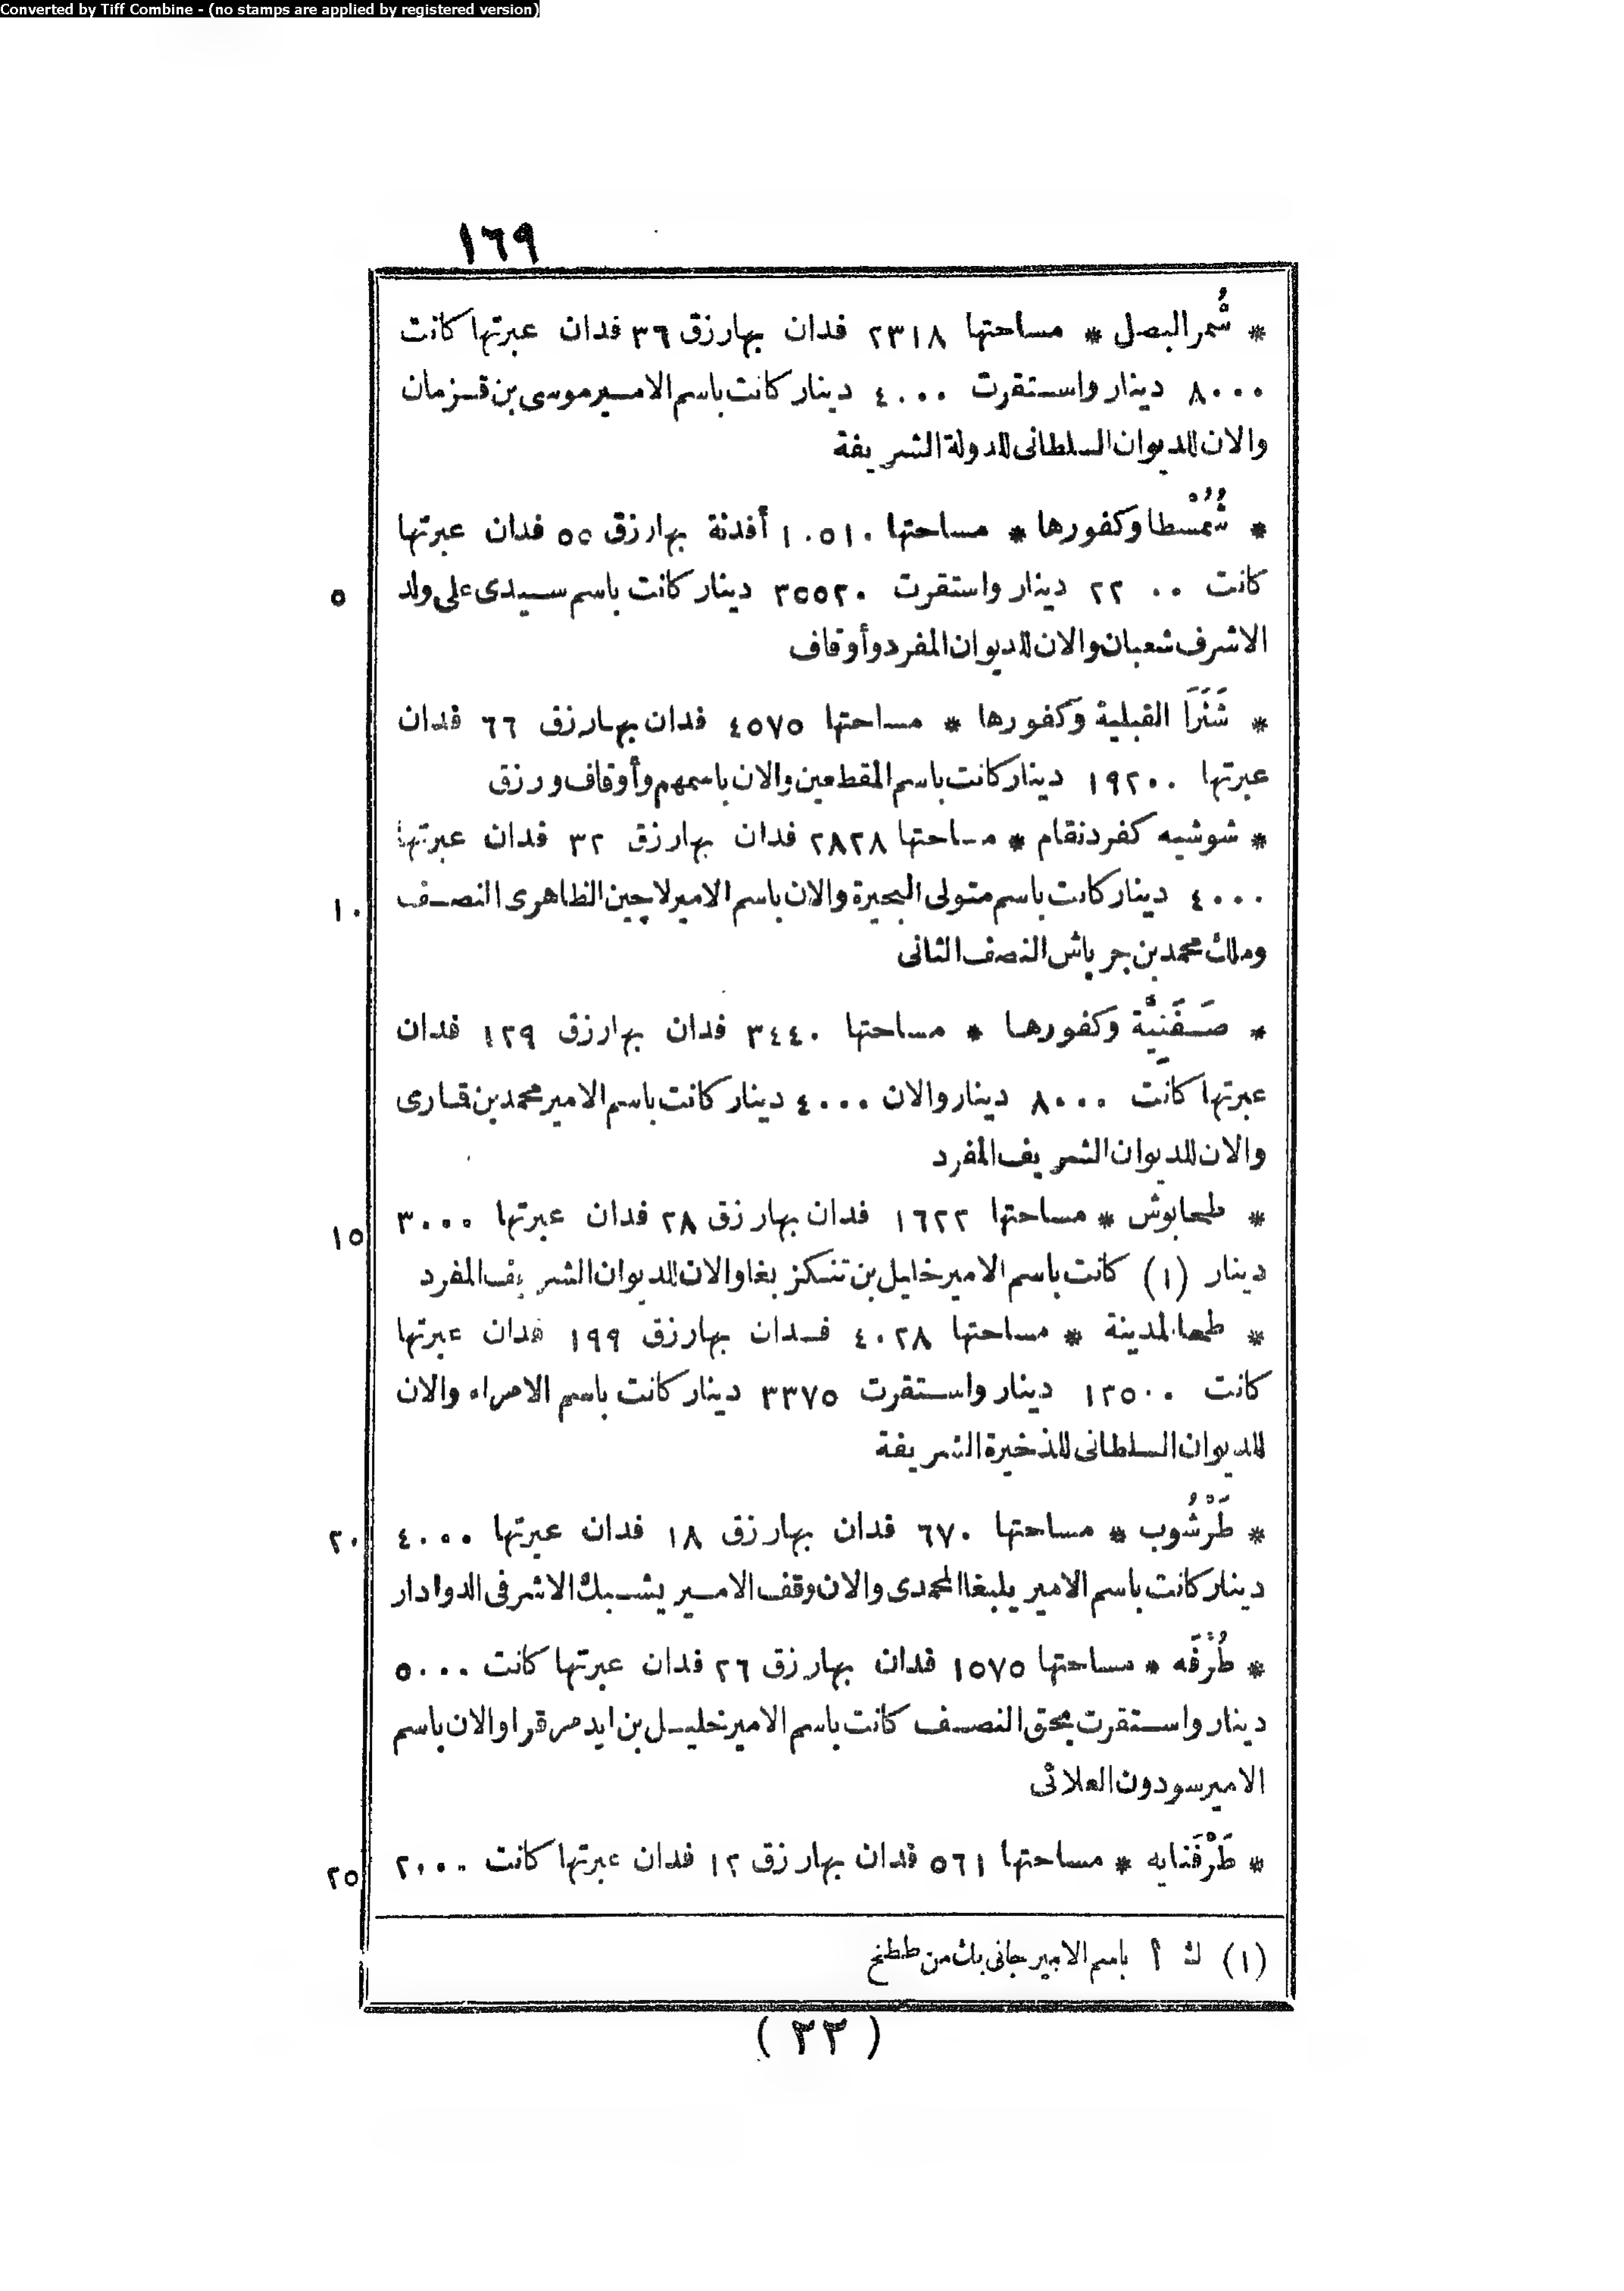 Converted by Tiff Combine - (no stamps are applied by registered version)
١٦٩
* شُمُر البصل * مساحتها ٢٣١٨ فدان بها رزق ٣٦ فدان عبرتها كانت
٨٠٠٠ دينار واستقرت ٤٠٠٠ دينار كانت باسم الامير موسى بن قزمان
والان للديوان السلطانى للدولة الشريفة
* شُمُسْطا وكفورها * مساحتها ١٠٥١٠ أفدنة بها رزق ٥٥ فدان عبرتها
٥ كانت ٢٢٠٠ دينار واستقرت ٣٥٥٢٠ دينار كانت باسم سيدى على ولد
الاشرف شعبان والان للديوان المفرد وأوقاف
* شَنَرَا القبلية وكفورها * مساحتها ٤٥٧٥ فدان بها رزق ٦٦ فدان
عبرتها ١٩٢٠٠ دينار كانت باسم المقطعين والان باسمهم وأوقاف ورزق
* شوشيه كفر دنقام * مساحتها ٢٨٢٨ فدان بها رزق ٣٢ فدان عبرتها
١٠ ٤٠٠٠ دينار كانت باسم متولى البحيرة والان باسم الامير لاچين الظاهرى النصف
وملك محمد بن جرباش النصف الثانى
* صَفَنِيَّة وكفورها * مساحتها ٣٤٤٠ فدان بها رزق ١٢٩ فدان
عبرتها كانت ٨٠٠٠ دينار والان ٤٠٠٠ دينار كانت باسم الامير محمد بن قارى
والان للديوان الشريف المفرد
١٥ * طحابوش * مساحتها ١٦٢٢ فدان بها رزق ٢٨ فدان عبرتها ٣٠٠٠
دينار (١) كانت باسم الامير خليل بن تنكز بغا والان للديوان الشريف المفرد
* طحا المدينة * مساحتها ٤٠٢٨ فدان بها رزق ١٩٩ فدان عبرتها
كانت ١٢٥٠٠ دينار واستقرت ٣٣٧٥ دينار كانت باسم الامراء والان
للديوان السلطانى للذخيرة الشريفة
٢٠ * طَرْشُوب * مساحتها ٦٧٠ فدان بها رزق ١٨ فدان عبرتها ٤٠٠٠
دينار كانت باسم الامير يلبغا المحمدى والان وقف الامير يشبك الاشرفى الدوادار
* طُرْفَه * مساحتها ١٥٧٥ فدان بها رزق ٢٦ فدان عبرتها كانت ٥٠٠٠
دينار واستقرت بحق النصف كانت باسم الامير خليل بن ايدمر قرا والان باسم
الامير سودون العلائى
٢٥ * طَرْفَنايه * مساحتها ٥٦١ فدان بها رزق ١٢ فدان عبرتها كانت ٢٠٠٠
(١) ك أ باسم الامير جانى بك من ططخ
(٢٢)